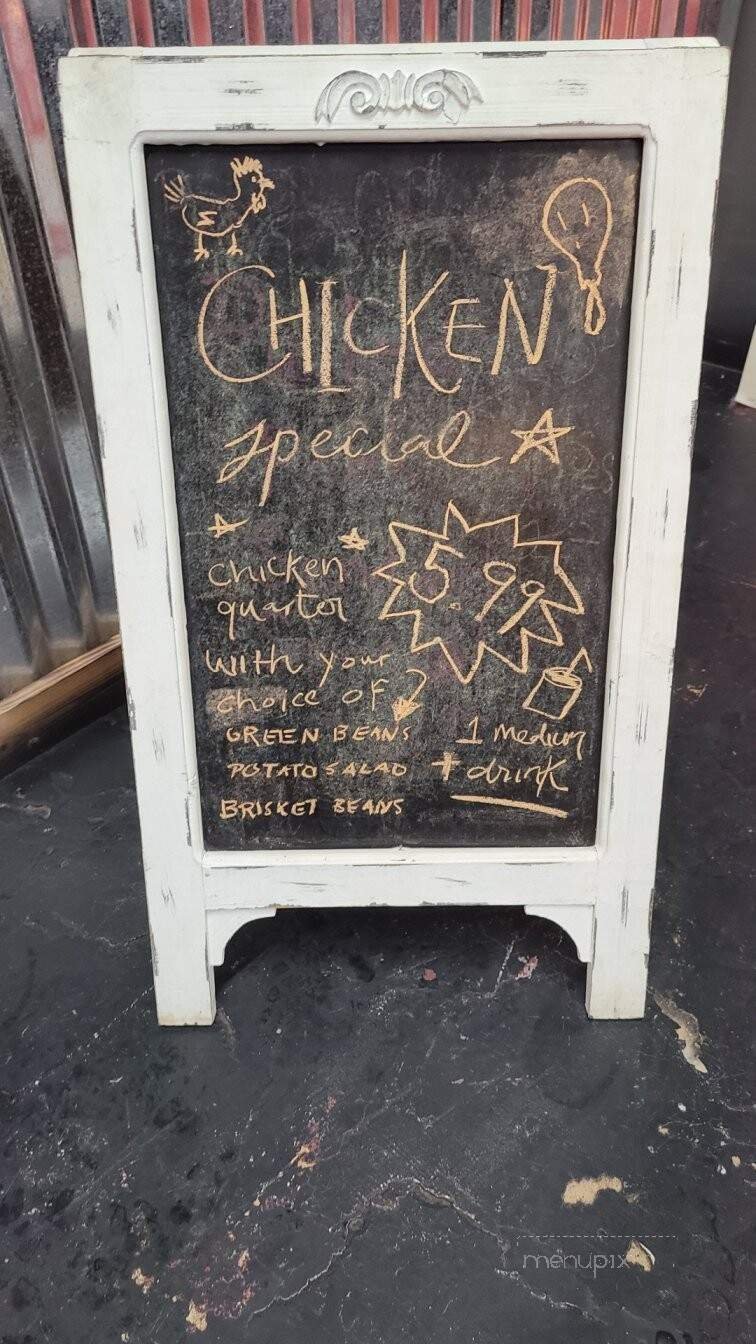 CHICKEN
special
chicken
quarter
5.99
with your
choice of
GREEN BEANS
POTATO SALAD
BRISKET BEANS
1 medium
+ drink
menupix